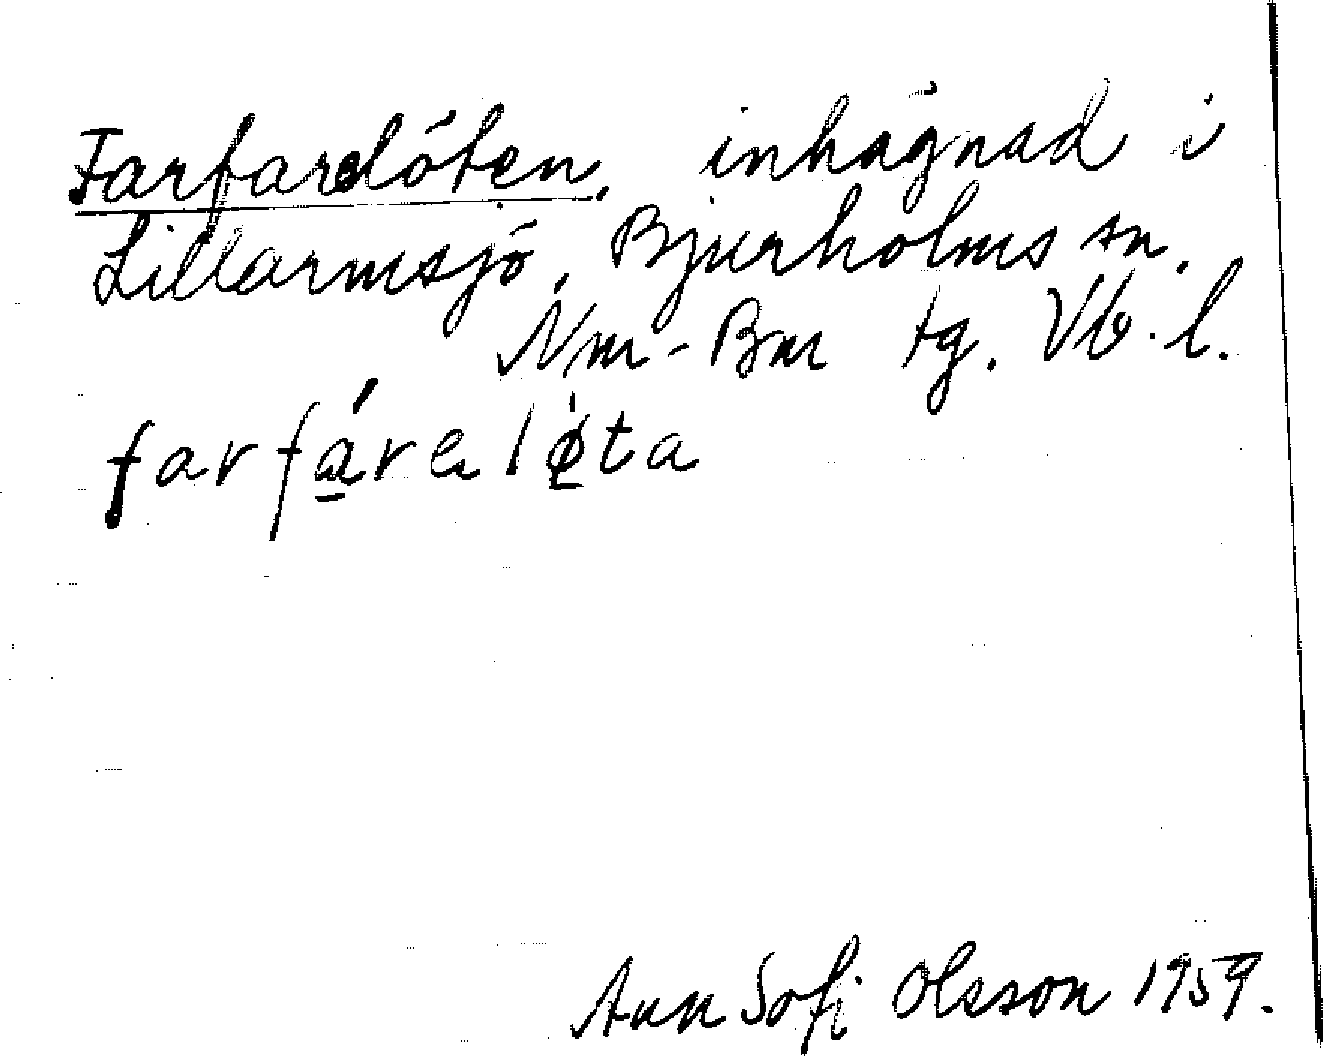 Farfarelöten. inhägnad i
Lillarmsjö, Bjurholms sn.
Nm-Bm tg. Vb. l.
farfárelø̀ta
Ann Sofi Olsson 1959.